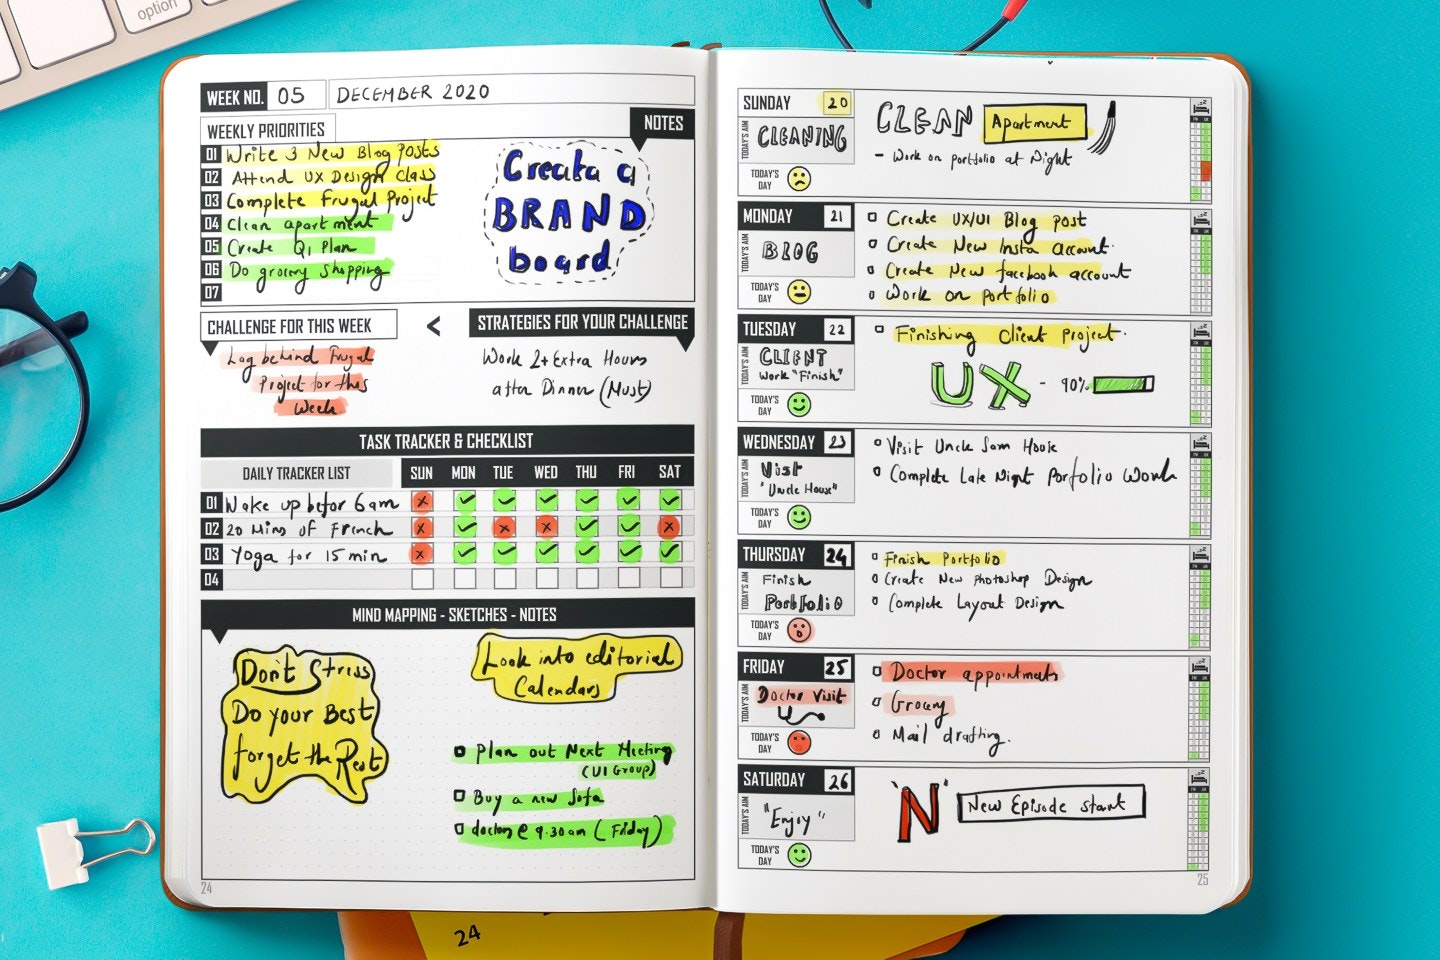 option
WEEK NO. 05 DECEMBER 2020
WEEKLY PRIORITIES
NOTES
01 Write 3 New Blog Posts
02 Attend UX Design Class
03 Complete Frugal Project
04 Clean apartment
05 Create Q1 Plan
06 Do grocery shopping
07
Create a
BRAND
board
CHALLENGE FOR THIS WEEK < STRATEGIES FOR YOUR CHALLENGE
Lag behind Frugal
Project for this
Week
Work 2+ Extra Hours
after Dinner (Must)
TASK TRACKER & CHECKLIST
DAILY TRACKER LIST SUN MON TUE WED THU FRI SAT
01 Wake up befor 6am
02 20 Mins of French
03 Yoga for 15 min
04
MIND MAPPING - SKETCHES - NOTES
Don't Stress
Do your Best
forget the Rest
Look into editorial
Calendars
Plan out Next Meeting
(UI Group)
Buy a new Sofa
doctors @ 9.30am (Friday)
24
SUNDAY 20
TODAY'S AIM
CLEANING
TODAY'S DAY
CLEAN Apartment
- Work on portfolio at Night
MONDAY 21
TODAY'S AIM
BLOG
TODAY'S DAY
Create UX/UI Blog post
Create New Insta account.
Create New facebook account
Work on portfolio
TUESDAY 22
TODAY'S AIM
CLIENT
Work "Finish"
TODAY'S DAY
Finishing Client project.
UX - 90%
WEDNESDAY 23
TODAY'S AIM
Visit
"Uncle House"
TODAY'S DAY
Visit Uncle Sam House
Complete Late Night Portfolio Work
THURSDAY 24
TODAY'S AIM
Finish
Portfolio
TODAY'S DAY
Finish Portfolio
Create New Photoshop Design
Complete Layout Design
FRIDAY 25
TODAY'S AIM
Doctor Visit
TODAY'S DAY
Doctor appointments
Grocery
Mail drafting.
SATURDAY 26
TODAY'S AIM
"Enjoy"
TODAY'S DAY
'N' New Episode start
25
24